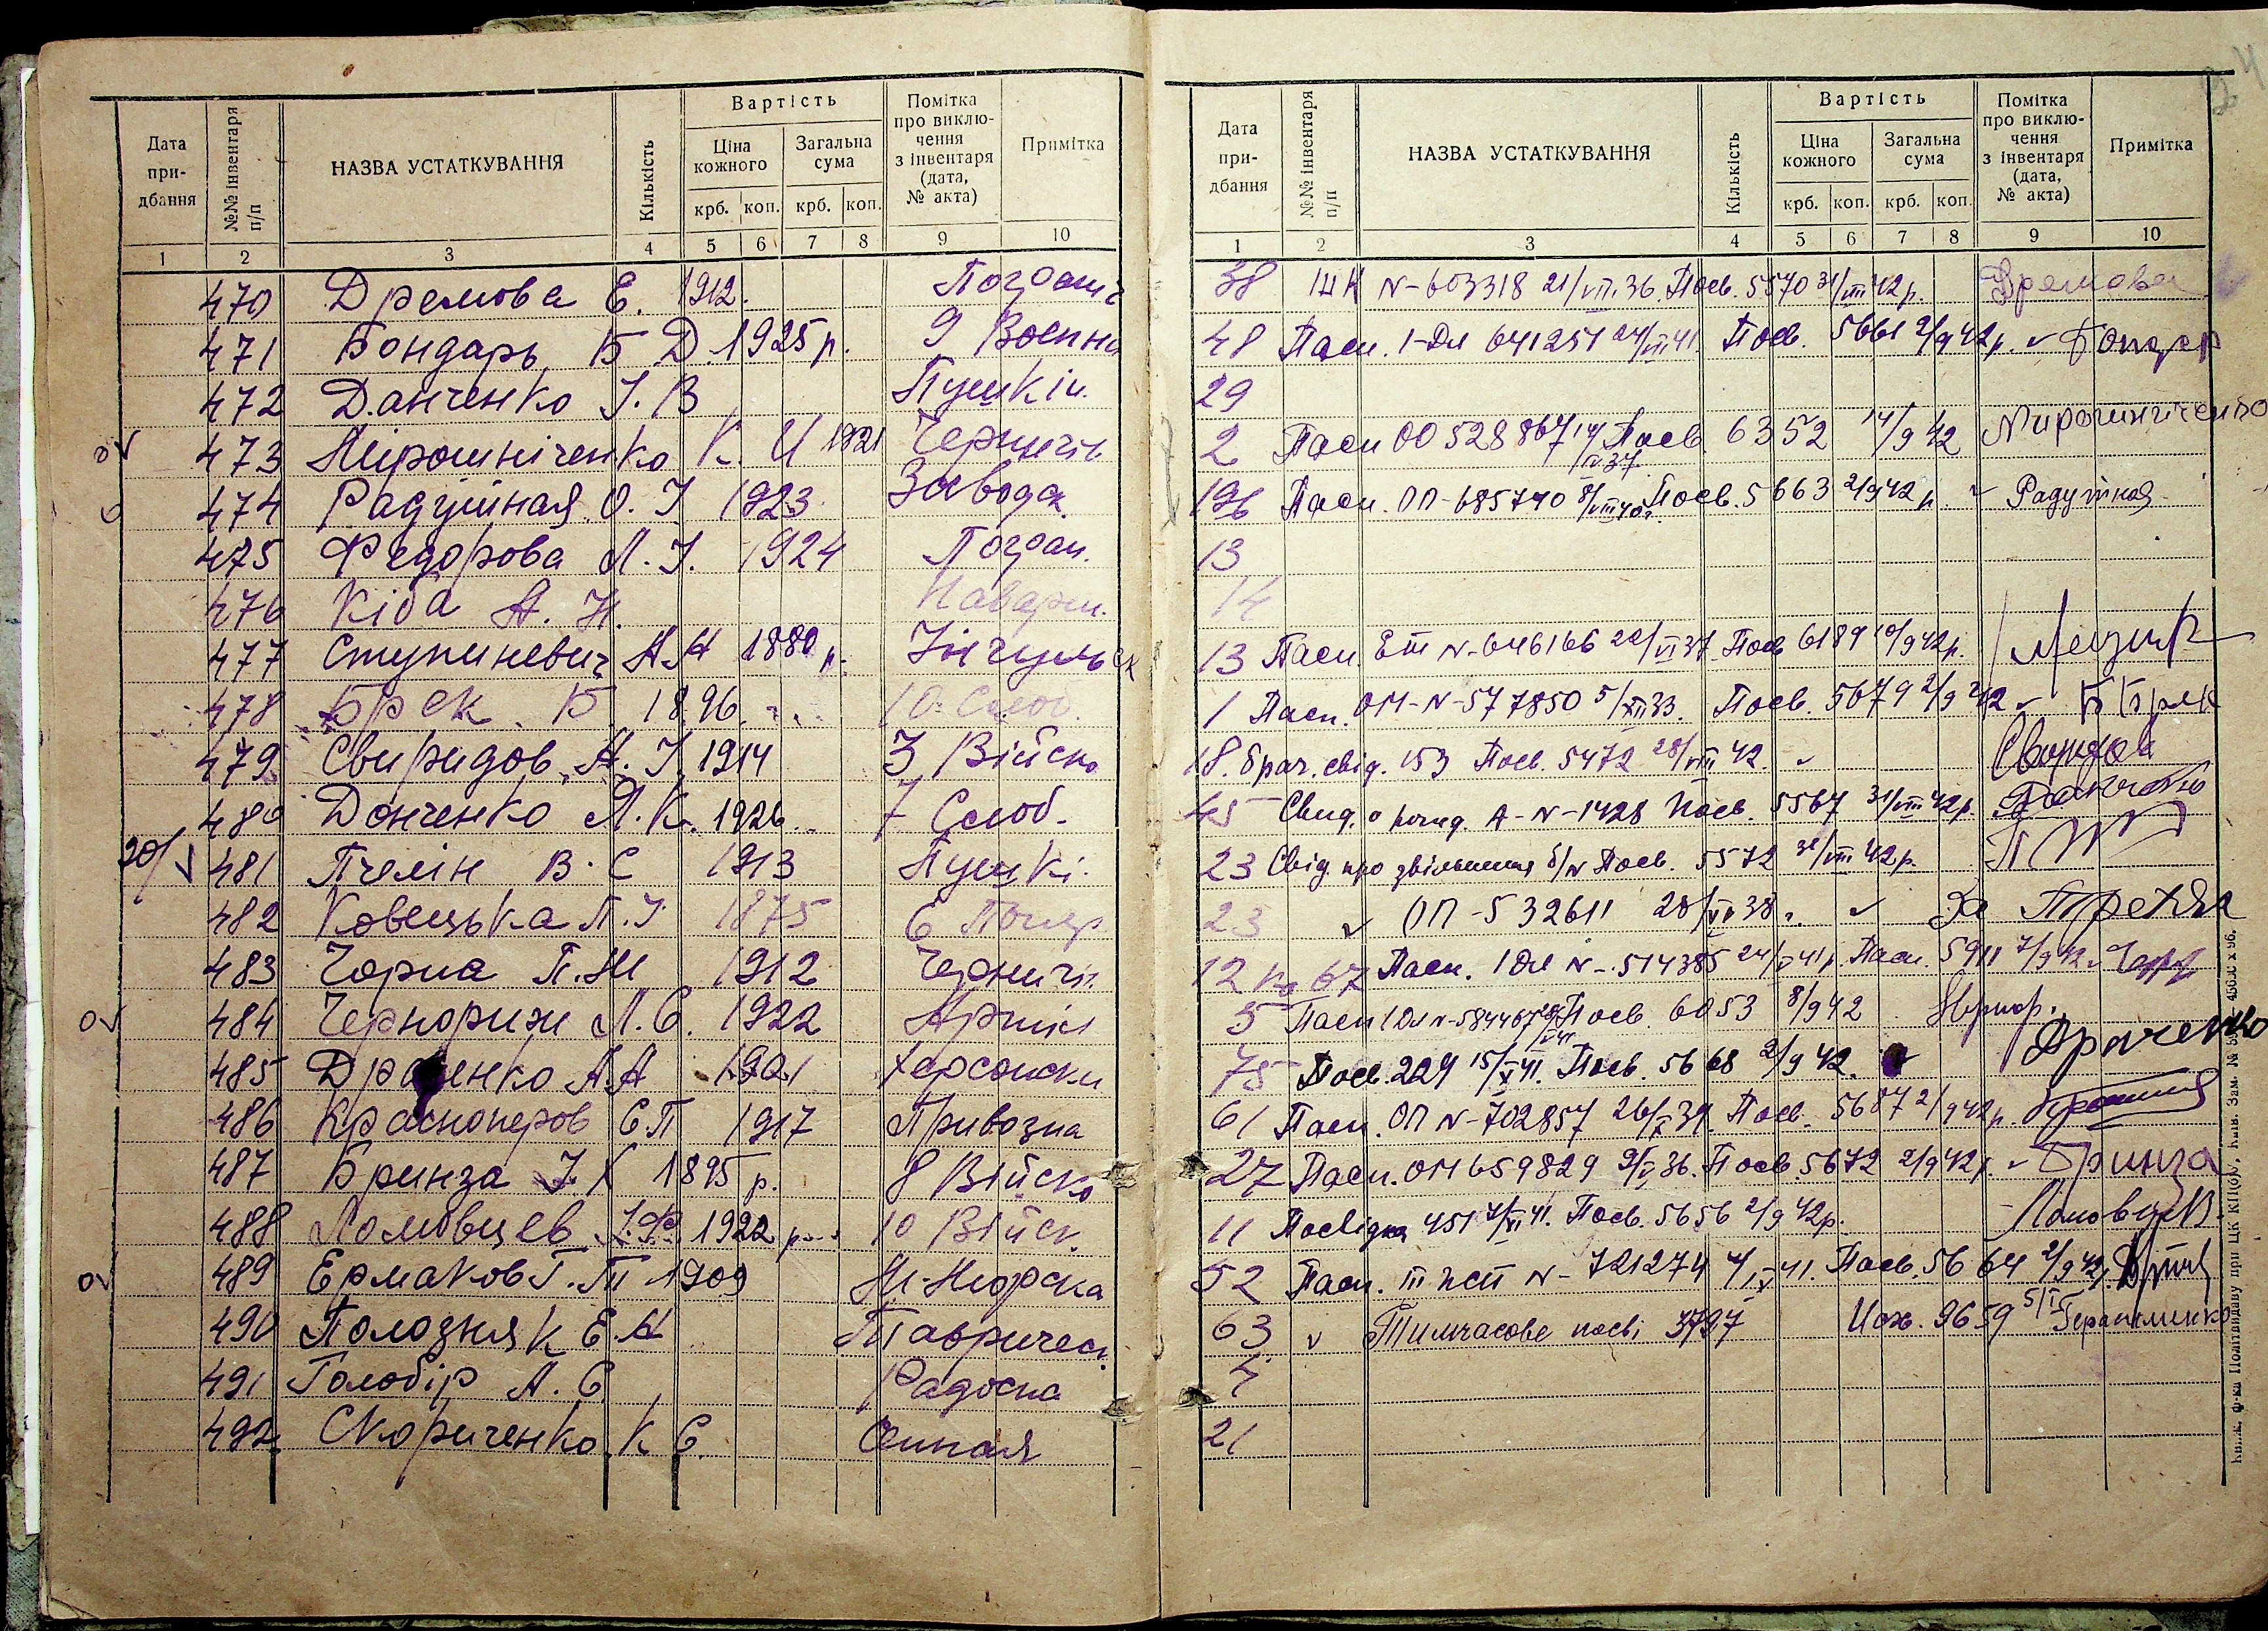 Дата при-дбання №№ інвентаря п/п НАЗВА УСТАТКУВАННЯ Кількість Вартість Ціна кожного Загальна сума крб. коп. крб. коп. Помітка про виклю-чення з інвентаря (дата, № акта) Примітка
1 2 3 4 5 6 7 8 9 10
470 Дремова Е. 1912.
471 Бондарь Б Д 1925 р. 9 Военна
472 Данченко І. В Пушкін.
473 Мірошніченко К. И 1921 Чернигів
474 Радуйная О. І 1923 Заводск.
475 Федорова Л. І. 1924 Погран.
476 Кіба А. Н. Наварин.
477 Ступиневич А.А 1880 р. Інгульск
478 Брек Б 1896 10 Слоб.
479 Свиридов А. І 1914 3 Військо
480 Донченко Л. К. 1926 7 Слоб.
20/ 481 Пчелін В. С 1913 Пушкі.
482 Ковецька П. І 1875 6 Погр
483 Чорна П. М 1912 Чернигів.
484 Чернориж Л. С. 1922
485 Драченко А.А 1901 Херсонски
486 Красноперов С П 1917 Привозна
487 Бринза І. К 1895 р. 8 Військо
488 Ломовцев І. Ф. 1922 р. 10 Війск.
489 Ермаков Г. Т 1909 М-Морска
490 Полозняк Е. А Тавричес.
491 Голобір А. С Радосна
492 Скориченко К С. Синная
Дата при-дбання №№ інвентаря п/п НАЗВА УСТАТКУВАННЯ Кількість Вартість Ціна кожного Загальна сума крб. коп. крб. коп. Помітка про виклю-чення з інвентаря (дата, № акта) Примітка
1 2 3 4 5 6 7 8 9 10
38 ШК N-603318 21/VII.36. Посв. 5570 31/VIII 42 р. Дремова
48 Пасп. 1-Дл 641251 24/VI 41. Посв. 5661 2/9 42 р. Бондар
29
2 Пасп 00 528867 14/IV.37. Посв. 6352 14/9 42 Мирошниченко
196 Пасп. ОП-685740 8/VIII 40 г. Посв. 5663 2/9 42 р Радуйная
13
14
13 Пасп. ЕШ N-646166 22/VI 37. Посв 6189 10/9 42 р.
1 Пасп. ОМ-N-577850 5/XII 33. Посв. 5679 2/9 42 Б Брек
18. брач. свід. 153 Посв. 5472 28/VIII 42. Свиридов
45 Свид. о рожд. А-N-1428 Посв. 5567 31/VIII 42 р. Донченко
23 Свід. про звільнення б/N Посв. 5572 31/VIII 42 р.
23 ОП-532611 28/VI 38.
12 кв 67 Пасп. 1 Дл N-514385 24/V 41 р. Пасп. 5911 7/9 42
5 Пасп 1 Дл N-584467 Посв. 6053 8/9 42
75 Посв. 229 15/X 41. Посв. 5668 2/9 42. Драченко
61 Пасп. ОП N-702857 26/X 39. Посв. 5687 2/9 42 р.
27 Пасп. ОМ 659829 9/V 36. Посв. 5672 2/9 42 р. Бринза
11 Посвідка 451 7/VI 41. Посв. 5656 2/9 42 р. Ломовцев
52 Пасп. III N-721274 Посв. 5664 2/9 42 р.
63 Тимчасове посві 3797 9659 Герасименко
7
21